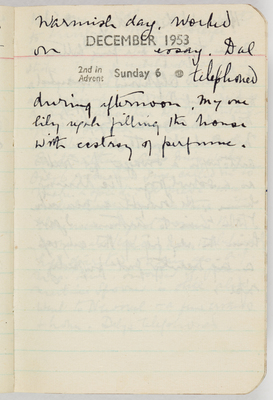 Warmish day. Worked
on essay. Dal
DECEMBER 1953
2nd in Advent Sunday 6 telephoned
during afternoon. My one
lily again filling the house
with ecstasy of perfume.